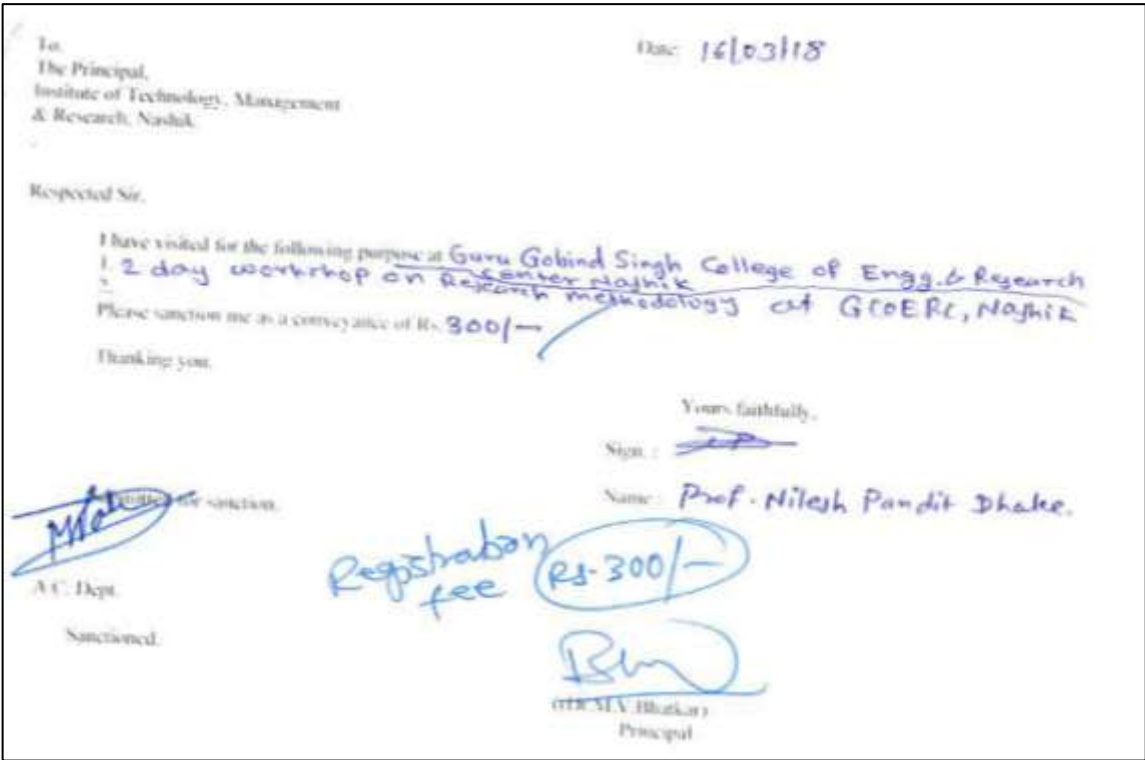 To,
Date: 16/03/18
The Principal,
Institute of Technology, Management
& Research, Nashik
Respected Sir,
I have visited for the following purpose at Guru Gobind Singh College of Engg. & Research
Center Nashik
1. 2 day workshop on Research methodology at GCOERC, Nashik
2.
Please sanction me as a conveyance of Rs. 300/-
Thanking you,
Yours faithfully,
Sign. :
for sanction.
Name : Prof. Nilesh Pandit Dhake.
Registration
fee Rs. 300/-
Dept.
Sanctioned.
Bhatkar)
Principal